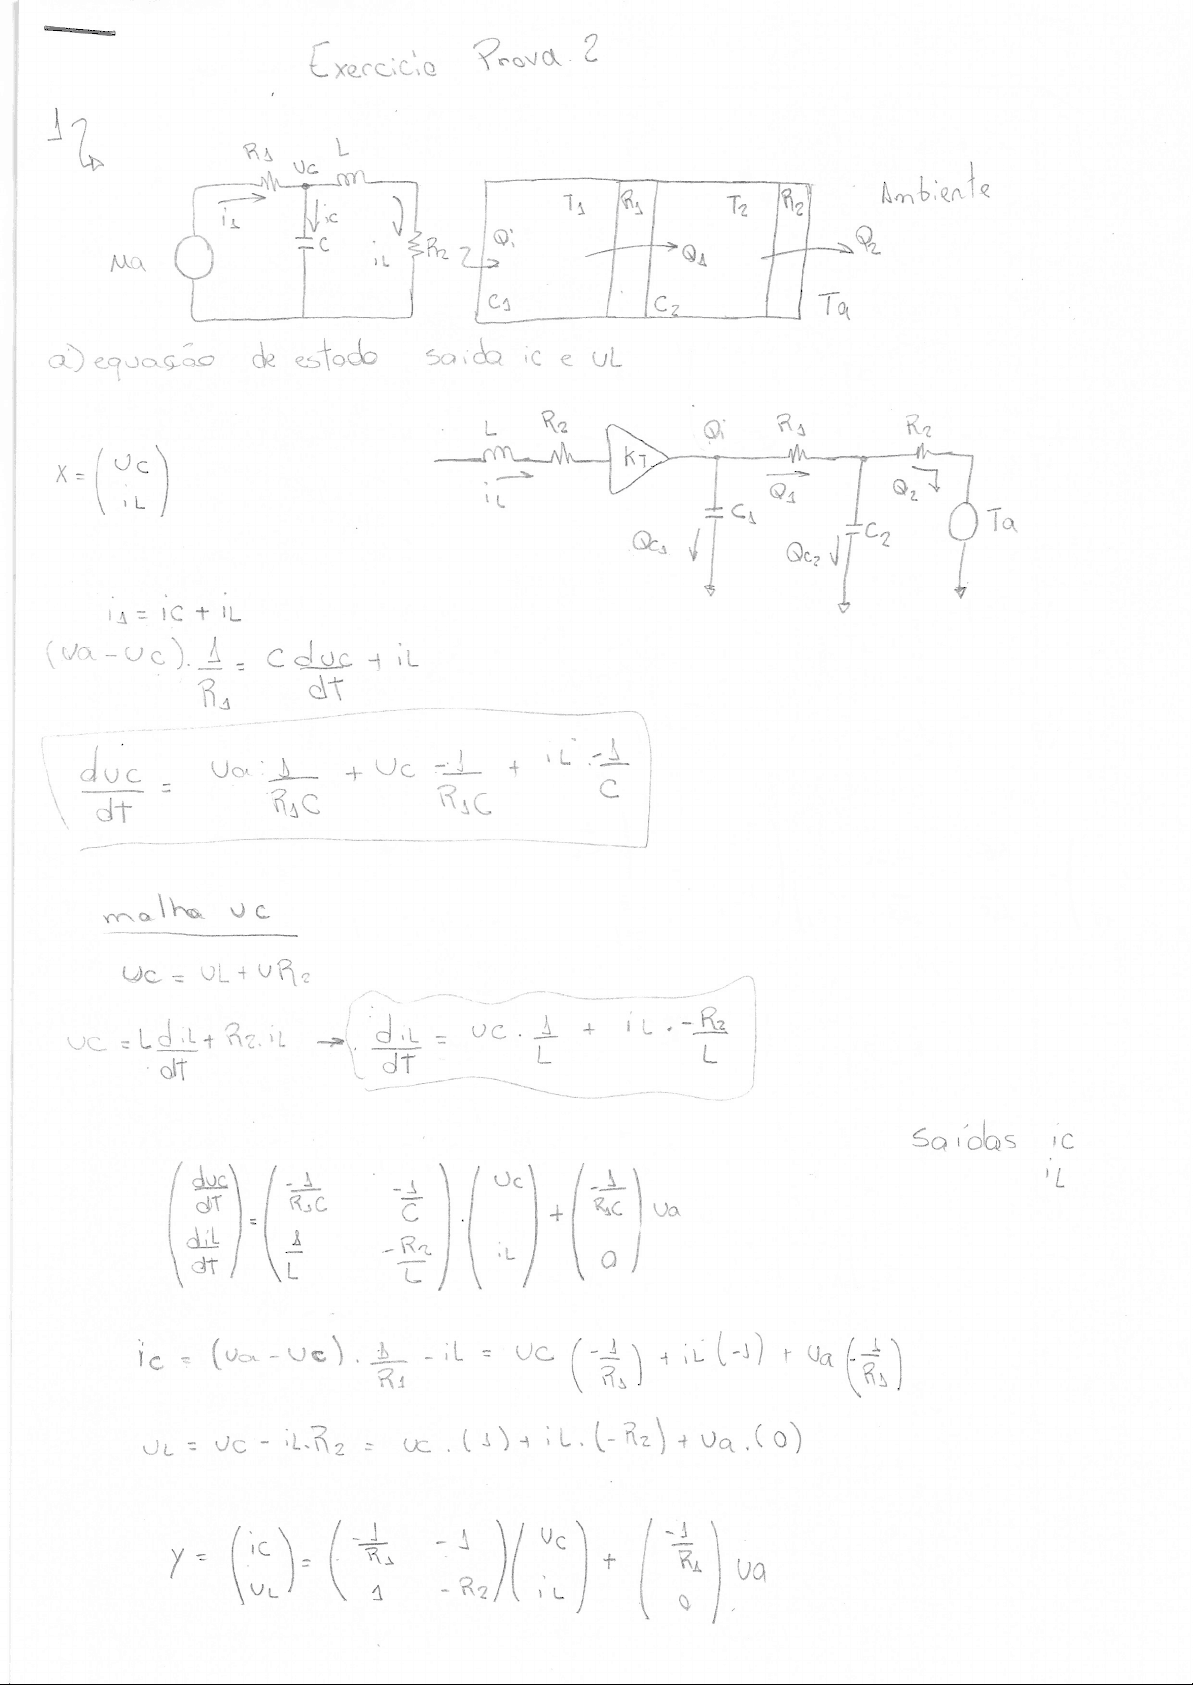 Exercicio Prova 2
1)
R1 uc L
i1 ic C iL R2
ua
T1 R1 T2 R2 Ambiente
Qi Q1 Q2
C1 C2 Ta
a) equação de estado saida ic e uL
L R2 KT Qi R1 R2
iL Q1 Q2
C1 C2 Ta
Qc1 Qc2
x = (uc iL)
i1 = ic + iL
(ua - uc) . 1/R1 = C duc/dT + iL
duc/dT = ua . 1/R1C + uc -1/R1C + iL . -1/C
malha uc
uc = uL + uR2
uc = L diL/dT + R2.iL → diL/dT = uc . 1/L + iL . -R2/L
Saídas ic
iL
(duc/dT diL/dT) = (-1/R1C -1/C 1/L -R2/L) . (uc iL) + (-1/R1C 0) ua
ic = (ua - uc) . 1/R1 - iL = uc (-1/R1) + iL (-1) + ua (-1/R1)
uL = uc - iL.R2 = uc . (1) + iL . (-R2) + ua . (0)
y = (ic uL) = (-1/R1 -1 1 -R2) (uc iL) + (-1/R1 0) ua